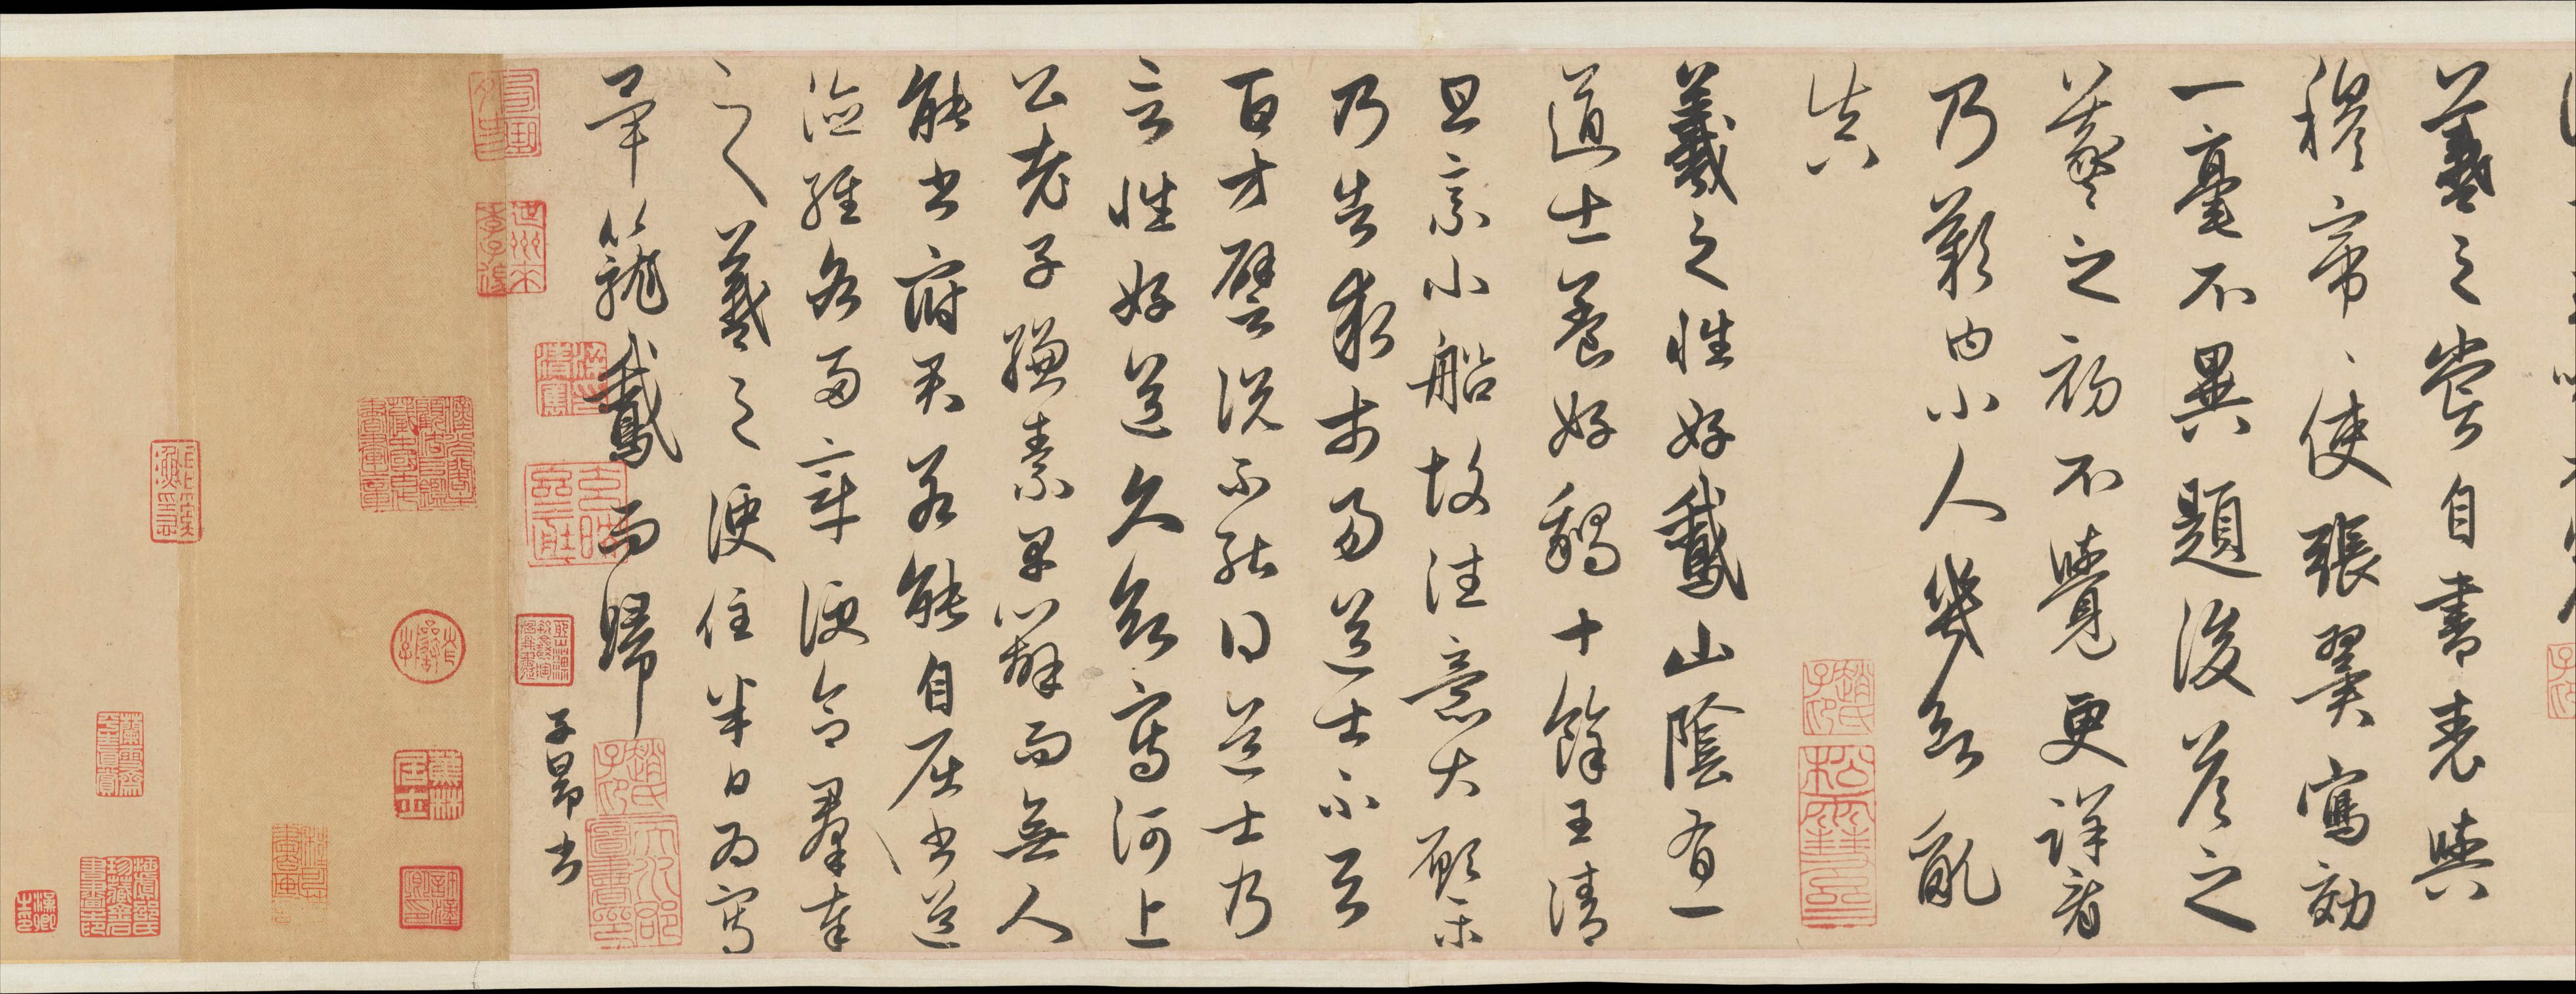 羲之嘗自書表與
穆帝、使張翼寫効
一毫不異題後答之
羲之初不覺更詳看
乃歎曰小人幾欲亂
真
羲之性好鵞山陰有一
道士養好鵝十餘王清
旦乘小船故往意大願樂
乃告求市易道士不與
百方譬說不能得道士乃
言性好道久欲寫河上
公老子縑素早辦而無人
能書府君若能自屈書道
德經各兩章便合羣奉
之羲之便住半日為寫
畢籠鵞而歸
子昂書
趙氏子昂
松雪齋